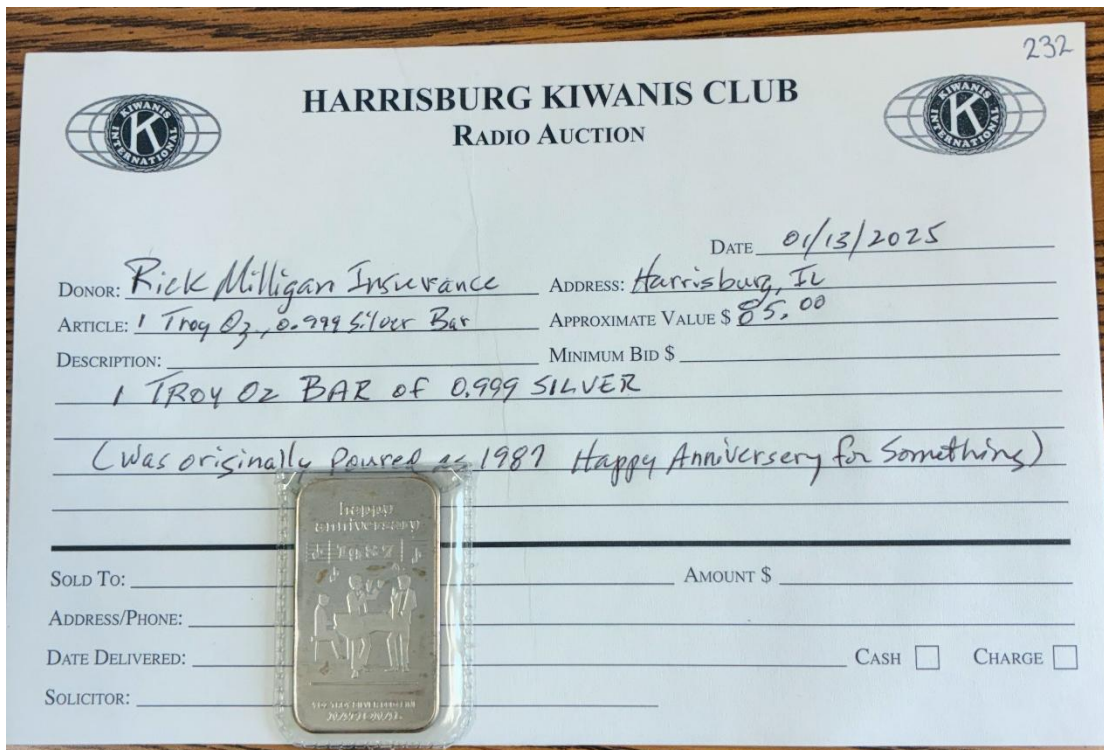 232
HARRISBURG KIWANIS CLUB
RADIO AUCTION
KIWANIS INTERNATIONAL K
KIWANIS INTERNATIONAL K
DATE 01/13/2025
DONOR: Rick Milligan Insurance ADDRESS: Harrisburg, IL
ARTICLE: 1 Troy Oz, 0.999 Silver Bar APPROXIMATE VALUE $ 85.00
DESCRIPTION: MINIMUM BID $
1 TROY OZ BAR OF 0.999 SILVER
(Was originally Poured as 1987 Happy Anniversery for Something)
happy
anniversary
1987
SOLD TO: AMOUNT $
ADDRESS/PHONE:
DATE DELIVERED: CASH CHARGE
SOLICITOR: